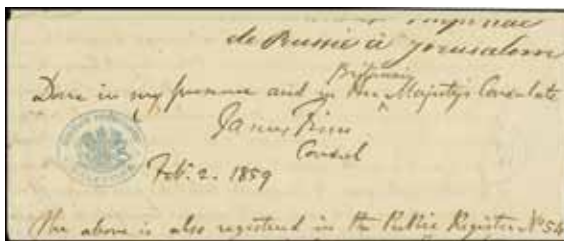 de Russie à Jerusalem
Britannic
Done in my presence and in Her Majesty's Consulate
James Finn
Consul
Feb. 2. 1859
The above is also registered in the Public Register No 54